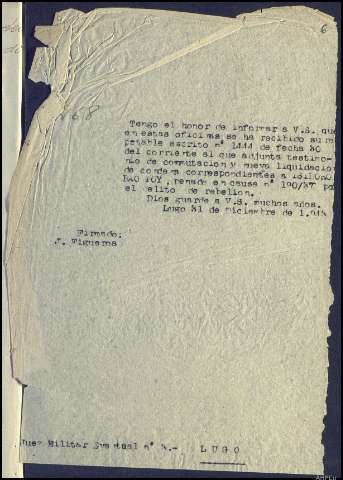 6
Tengo el honor de informar a V.S. que
en estas oficinas se ha recibido su res
petable escrito nº 1444 de fecha 30
del corriente al que adjunta testimo-
nio de conmutacion y nueva liquidacion
de condena correspondientes a ISIDORO
, penado en causa nº 190/37 por
el delito de rebelion.
Dios guarde a V.S. muchos años.
Lugo 31 de Diciembre de 1.943
Firmado:
J. Figueroa
Juez Militar Eventual nº 4.- LUGO